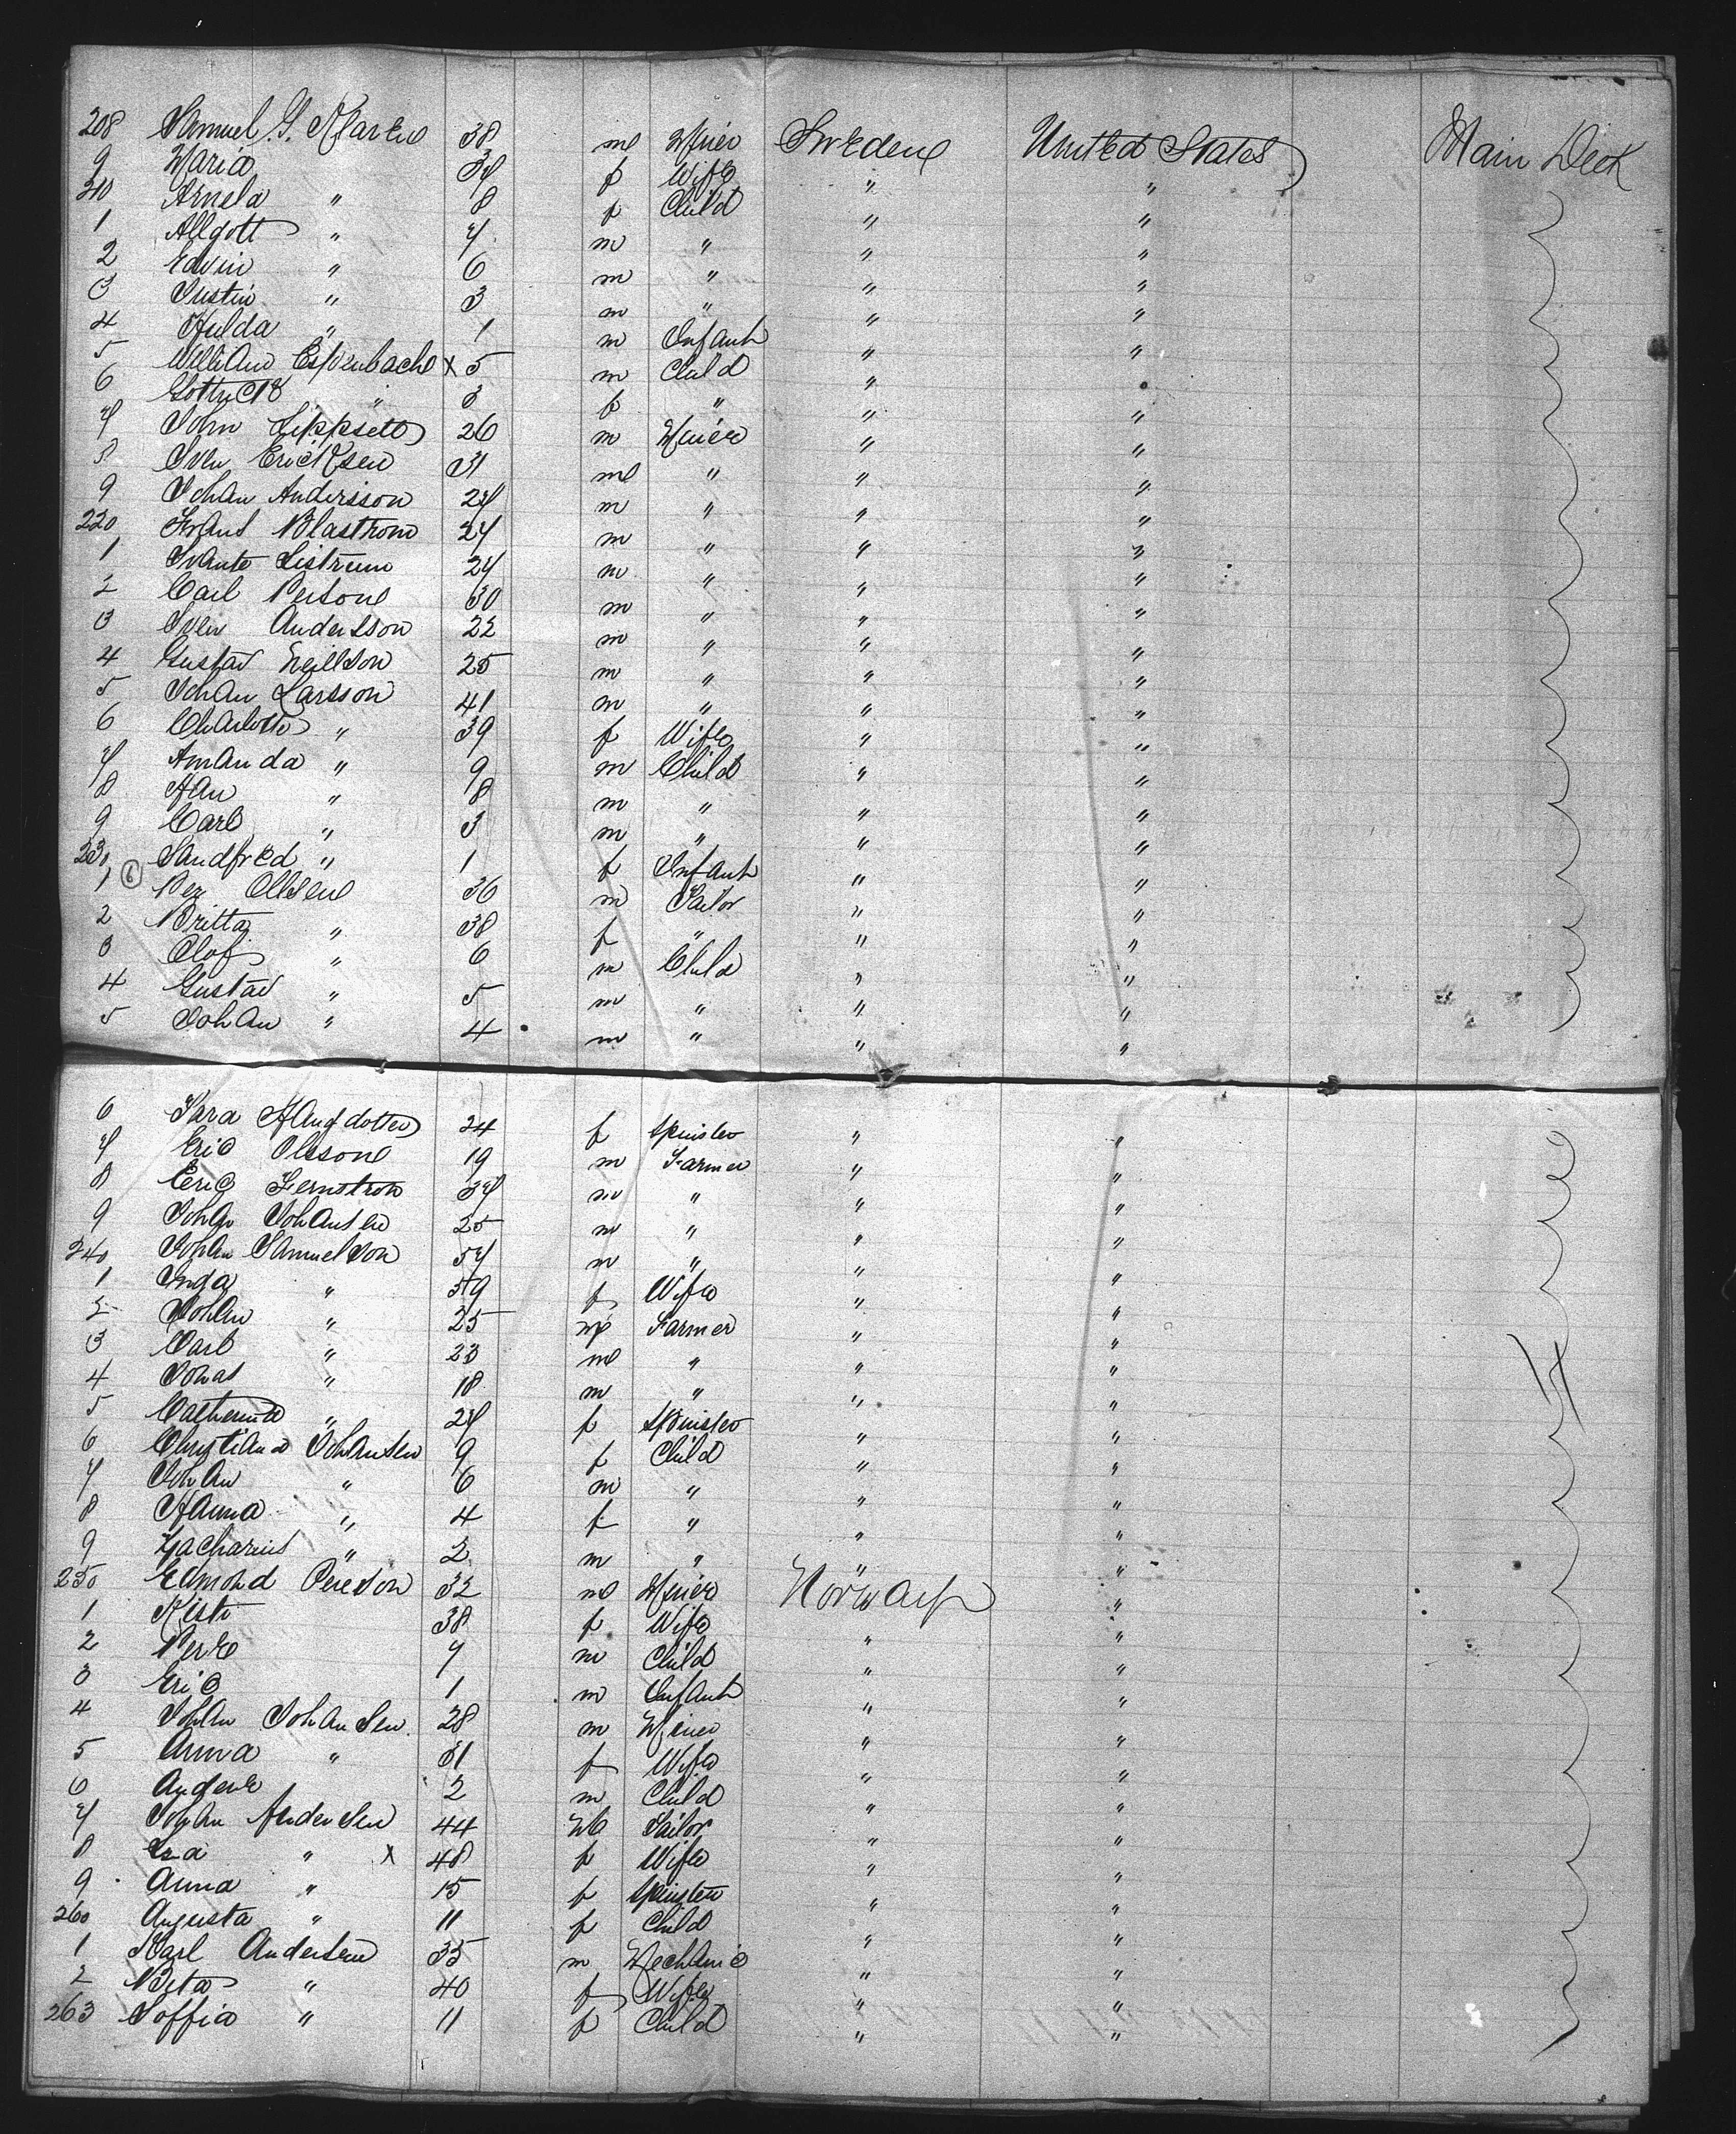 208 Samuel G. 38 m Miner Sweden United States Main Deck
9 Maria f Wife " "
210 Arnela " 8 f Child " "
1 Allgott " 7 m " " "
2 Edwin " 6 m " " "
3 Justin " 3 m " " "
4 Hulda " 1 m Infant " "
5 William x 5 m Child " "
6 " 3 f " " "
7 John Lippsett 26 m Miner " "
8 Sven Ericksen 31 m " " "
9 Johan Andersson 27 m " " "
220 Frans Blastrom 27 m " " "
1 Svante Listrum 27 m " " "
2 Carl Persone 30 m " " "
3 Sven Andersson 22 m " " "
4 Gustav Neillson 25 m " " "
5 Johan Larsson 41 m " " "
6 Charlotte " 39 f Wife " "
7 Amanda " 9 m Child " "
8 Han " 8 m " " "
9 Carl " 3 m " " "
230 Sandfred " 1 f Infant " "
1 6 Per Ollsene 36 m Tailor " "
2 Britta " 38 f " " "
3 Olof " 6 m Child " "
4 Gustav " 5 m " " "
5 Johan " 4 m " " "
6 Sara 24 f Spinster " "
7 Eric Olssone 19 m Farmer " "
8 Eric 37 m " " "
9 Johan Johansen 25 m " " "
240 Johan Samuelson 57 m " " "
1 Inga " 59 f Wife " "
2 Johan " 25 m Farmer " "
3 Carl " 23 m " " "
4 Jonas " 18 m " " "
5 Catherine " 27 f Spinster " "
6 Christiana Johansen 9 f Child " "
7 Johan " 6 m " " "
8 Hanna " 4 f " " "
9 Zacharius " 2 m " " "
250 Edmond Pereson 32 m Miner Norway "
1 Kisti 38 f Wife " "
2 7 m Child " "
3 Eric 1 m Infant " "
4 Johan Johansen 28 m Miner " "
5 Anna " 31 f Wife " "
6 2 m Child " "
7 Johan Andersen 44 m Tailor " "
8 " x 48 f Wife " "
9 Anna " 15 f Spinster " "
260 Augusta " 11 f Child " "
1 Karl Andersen 35 m Mechanic " "
2 Beta " 40 f Wife " "
263 Soffia " 11 f Child " "